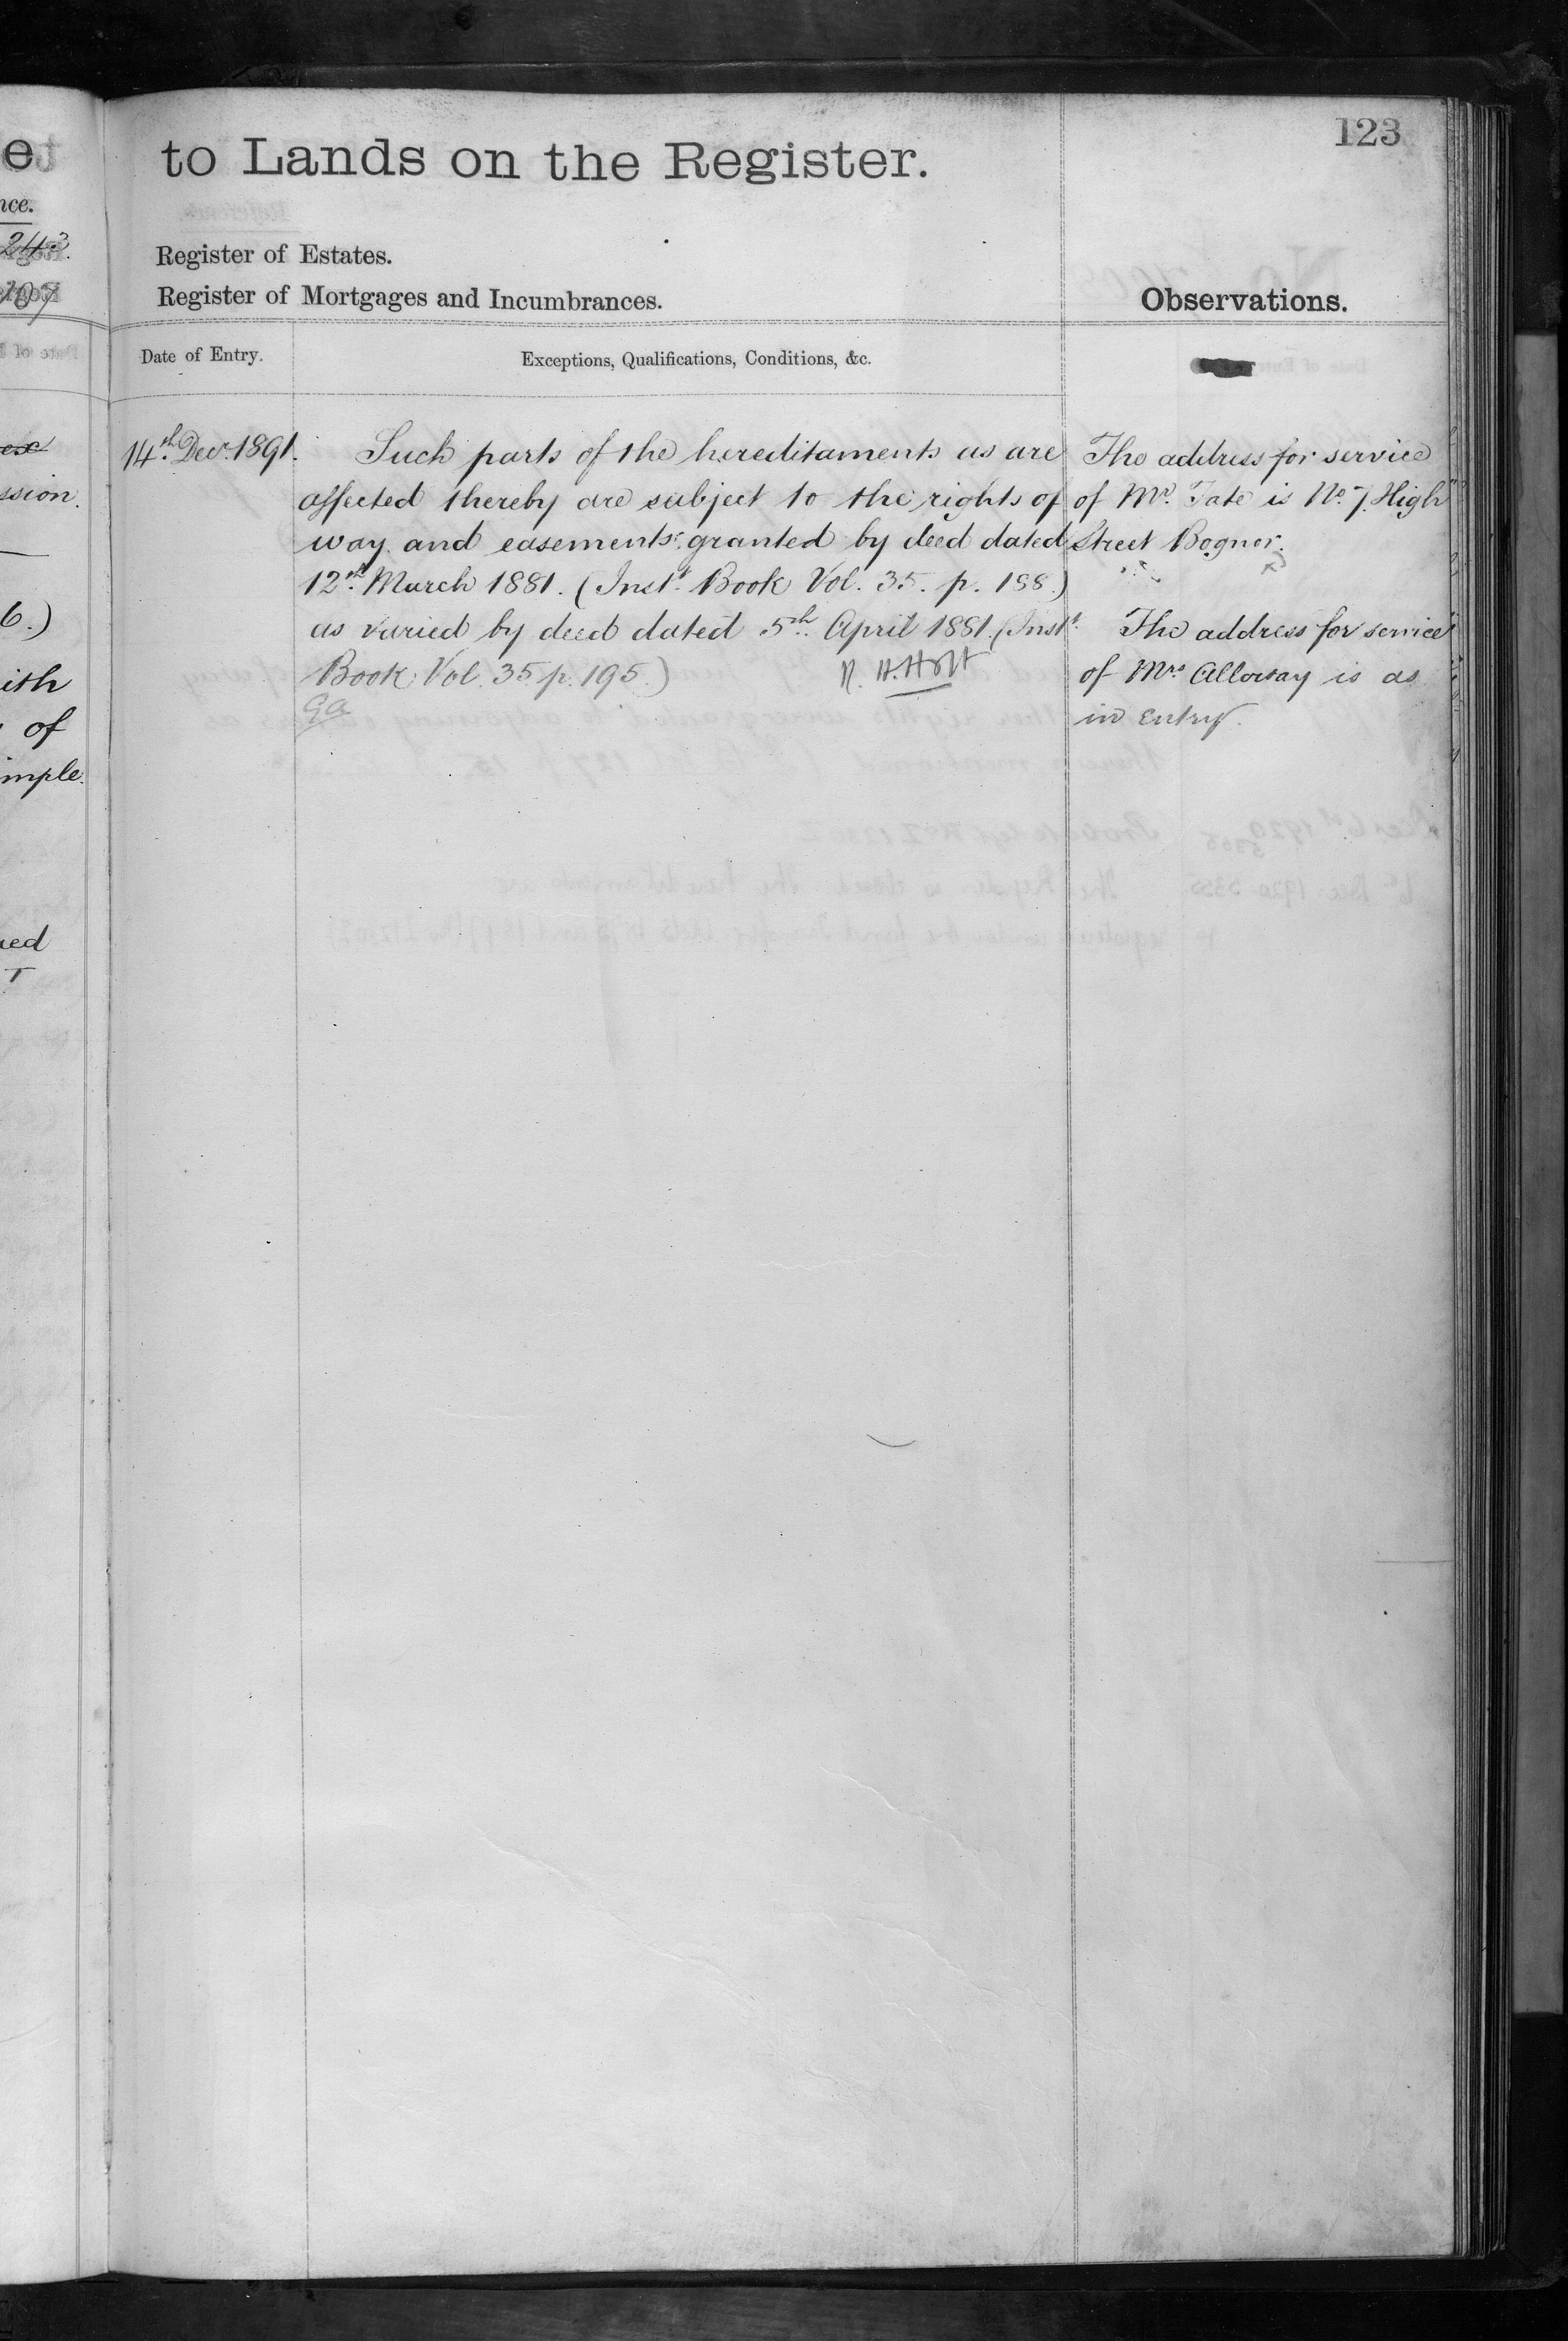 123
to Lands on the Register.
Register of Estates.
Register of Mortgages and Incumbrances.
Observations.
Date of Entry.
Exceptions, Qualifications, Conditions, &c.
14th Decr 1891.
Such parts of the hereditaments as are
affected thereby are subject to the rights of
way and easements granted by deed dated
12th March 1881. (Inst. Book Vol. 35. p. 188.)
as varied by deed dated 5th April 1881. (Inst.
Book Vol. 35 p. 195.)
R. H. Holt
The address for service
of Mr. Tate is No. 7. High
Street Bognor.
The address for service
of Mrs. Alloway is as
in entry.
e
nce.
107
ssion.
6.)
ith
of
imple.